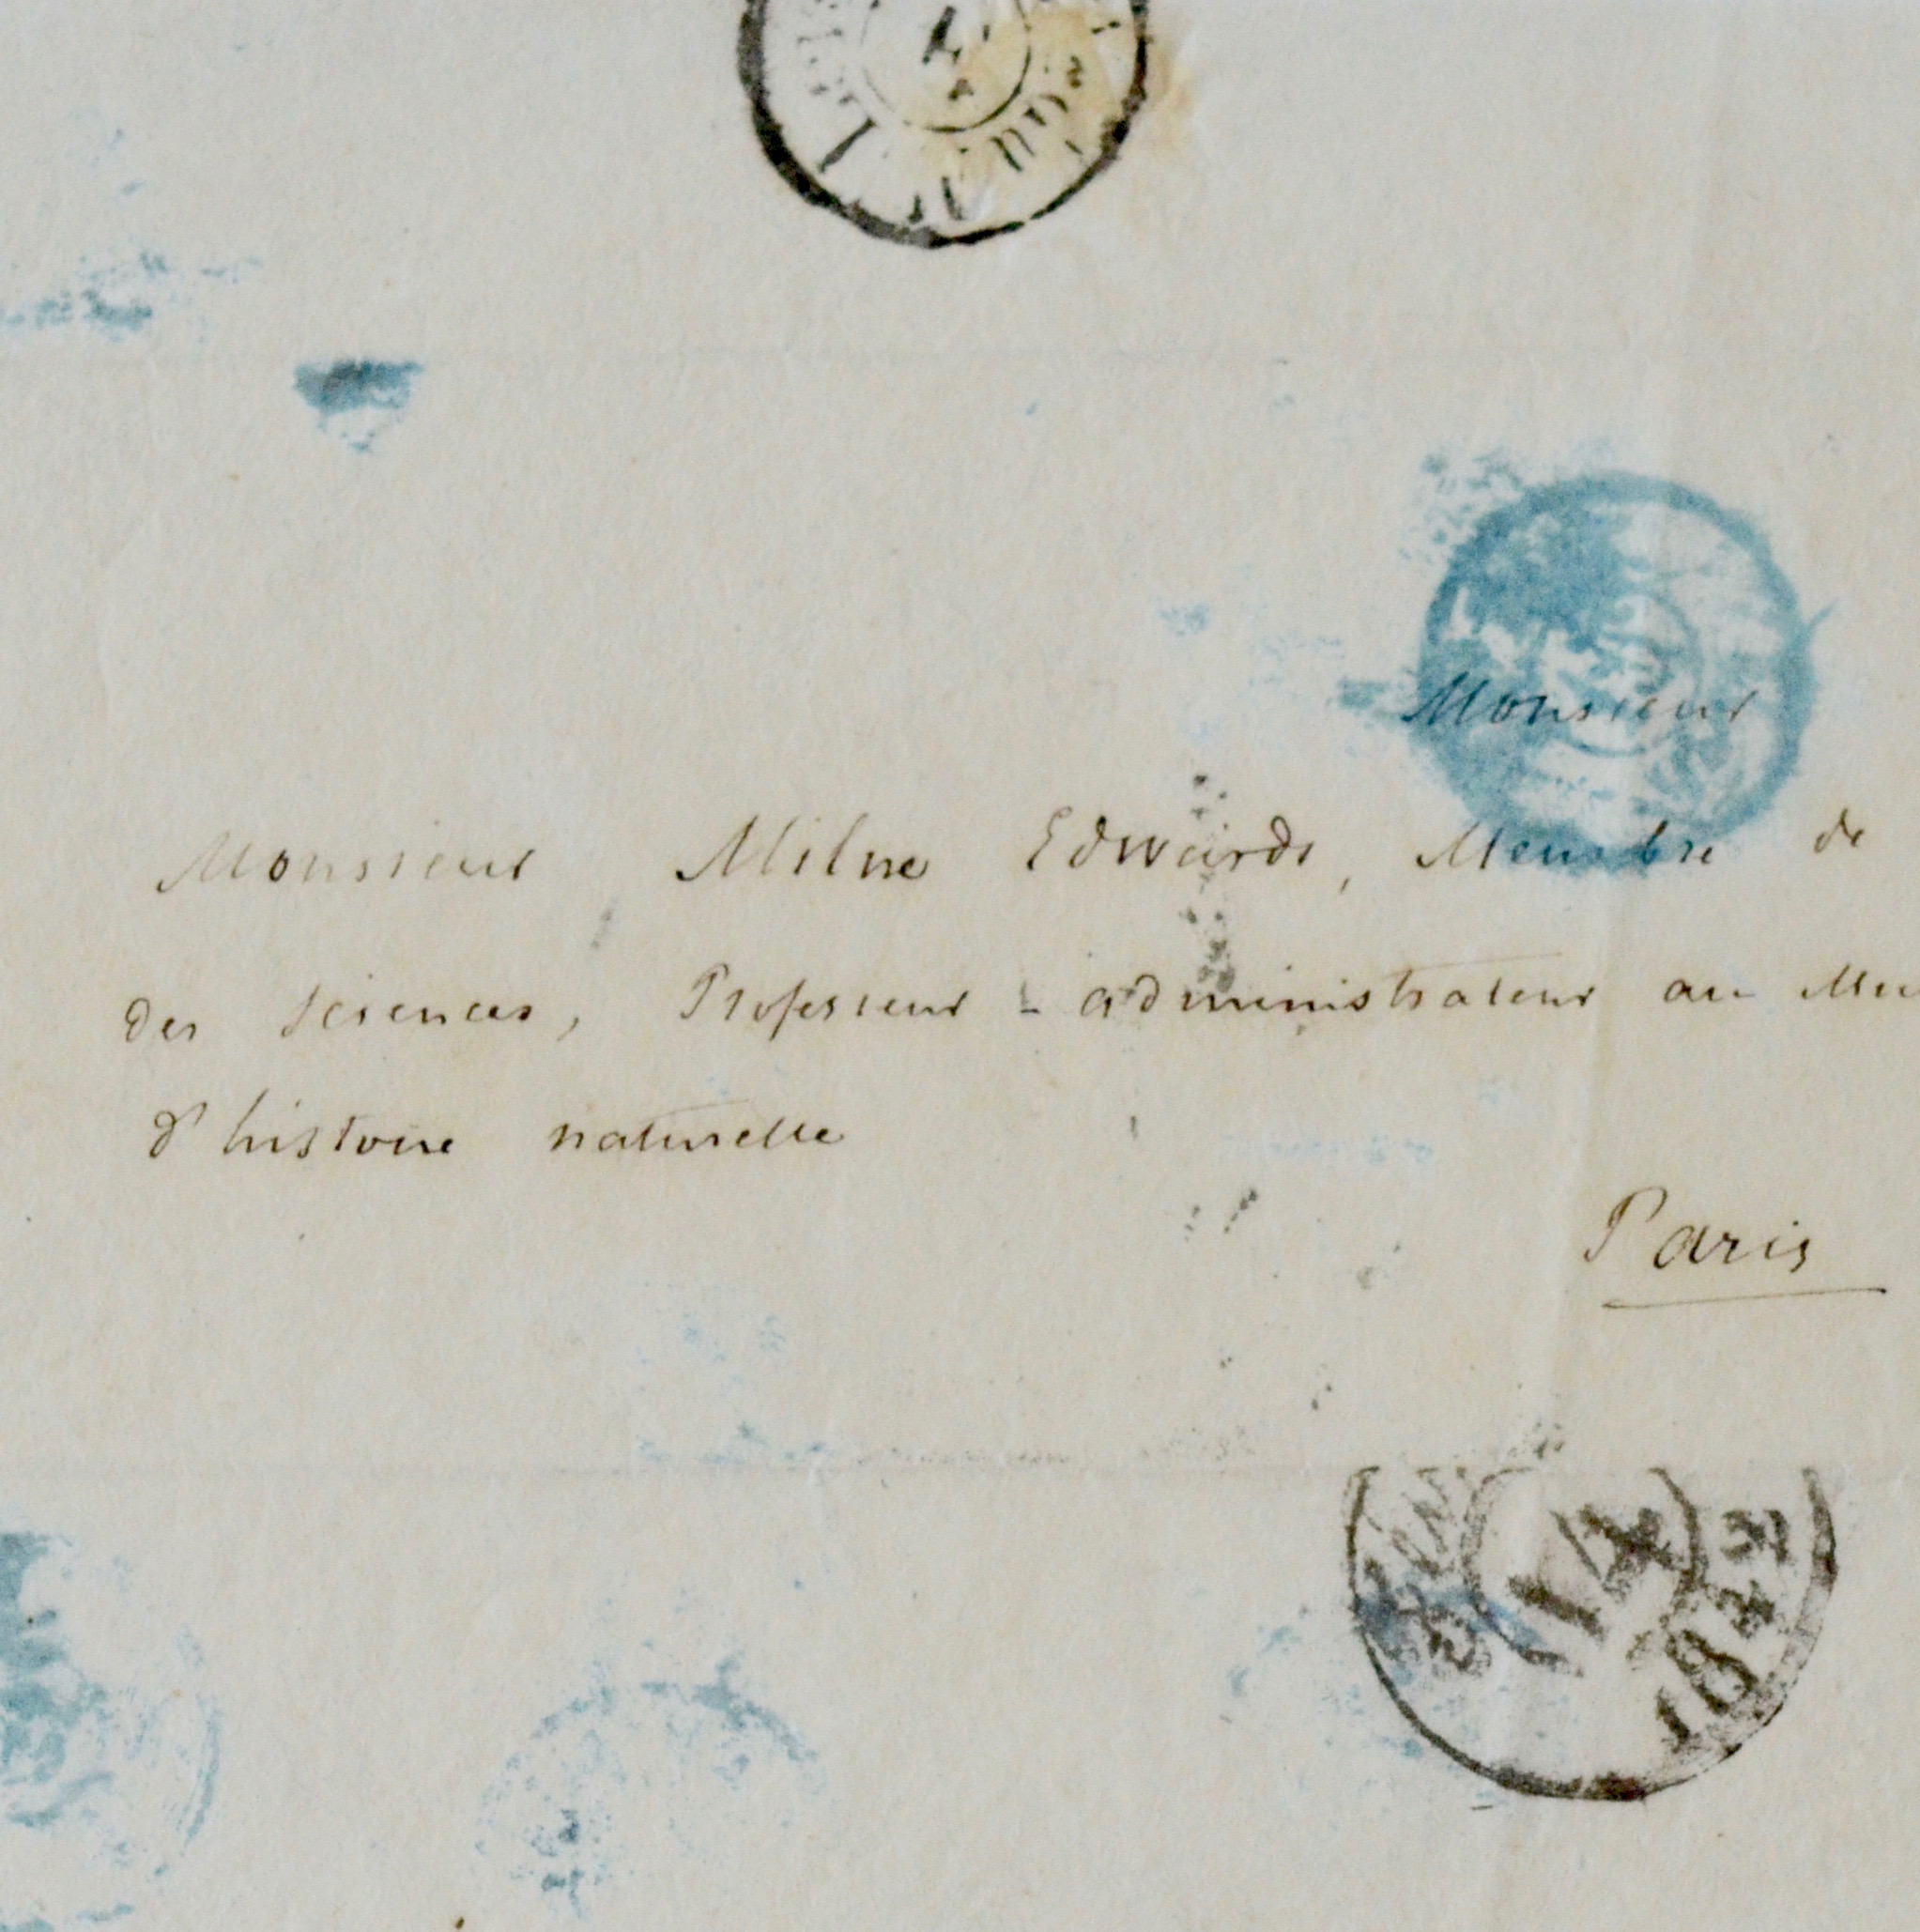 Monsieur
Monsieur Milne Edwards, Membre de
des sciences, Professeur - administrateur au Mu
d'histoire naturelle
Paris